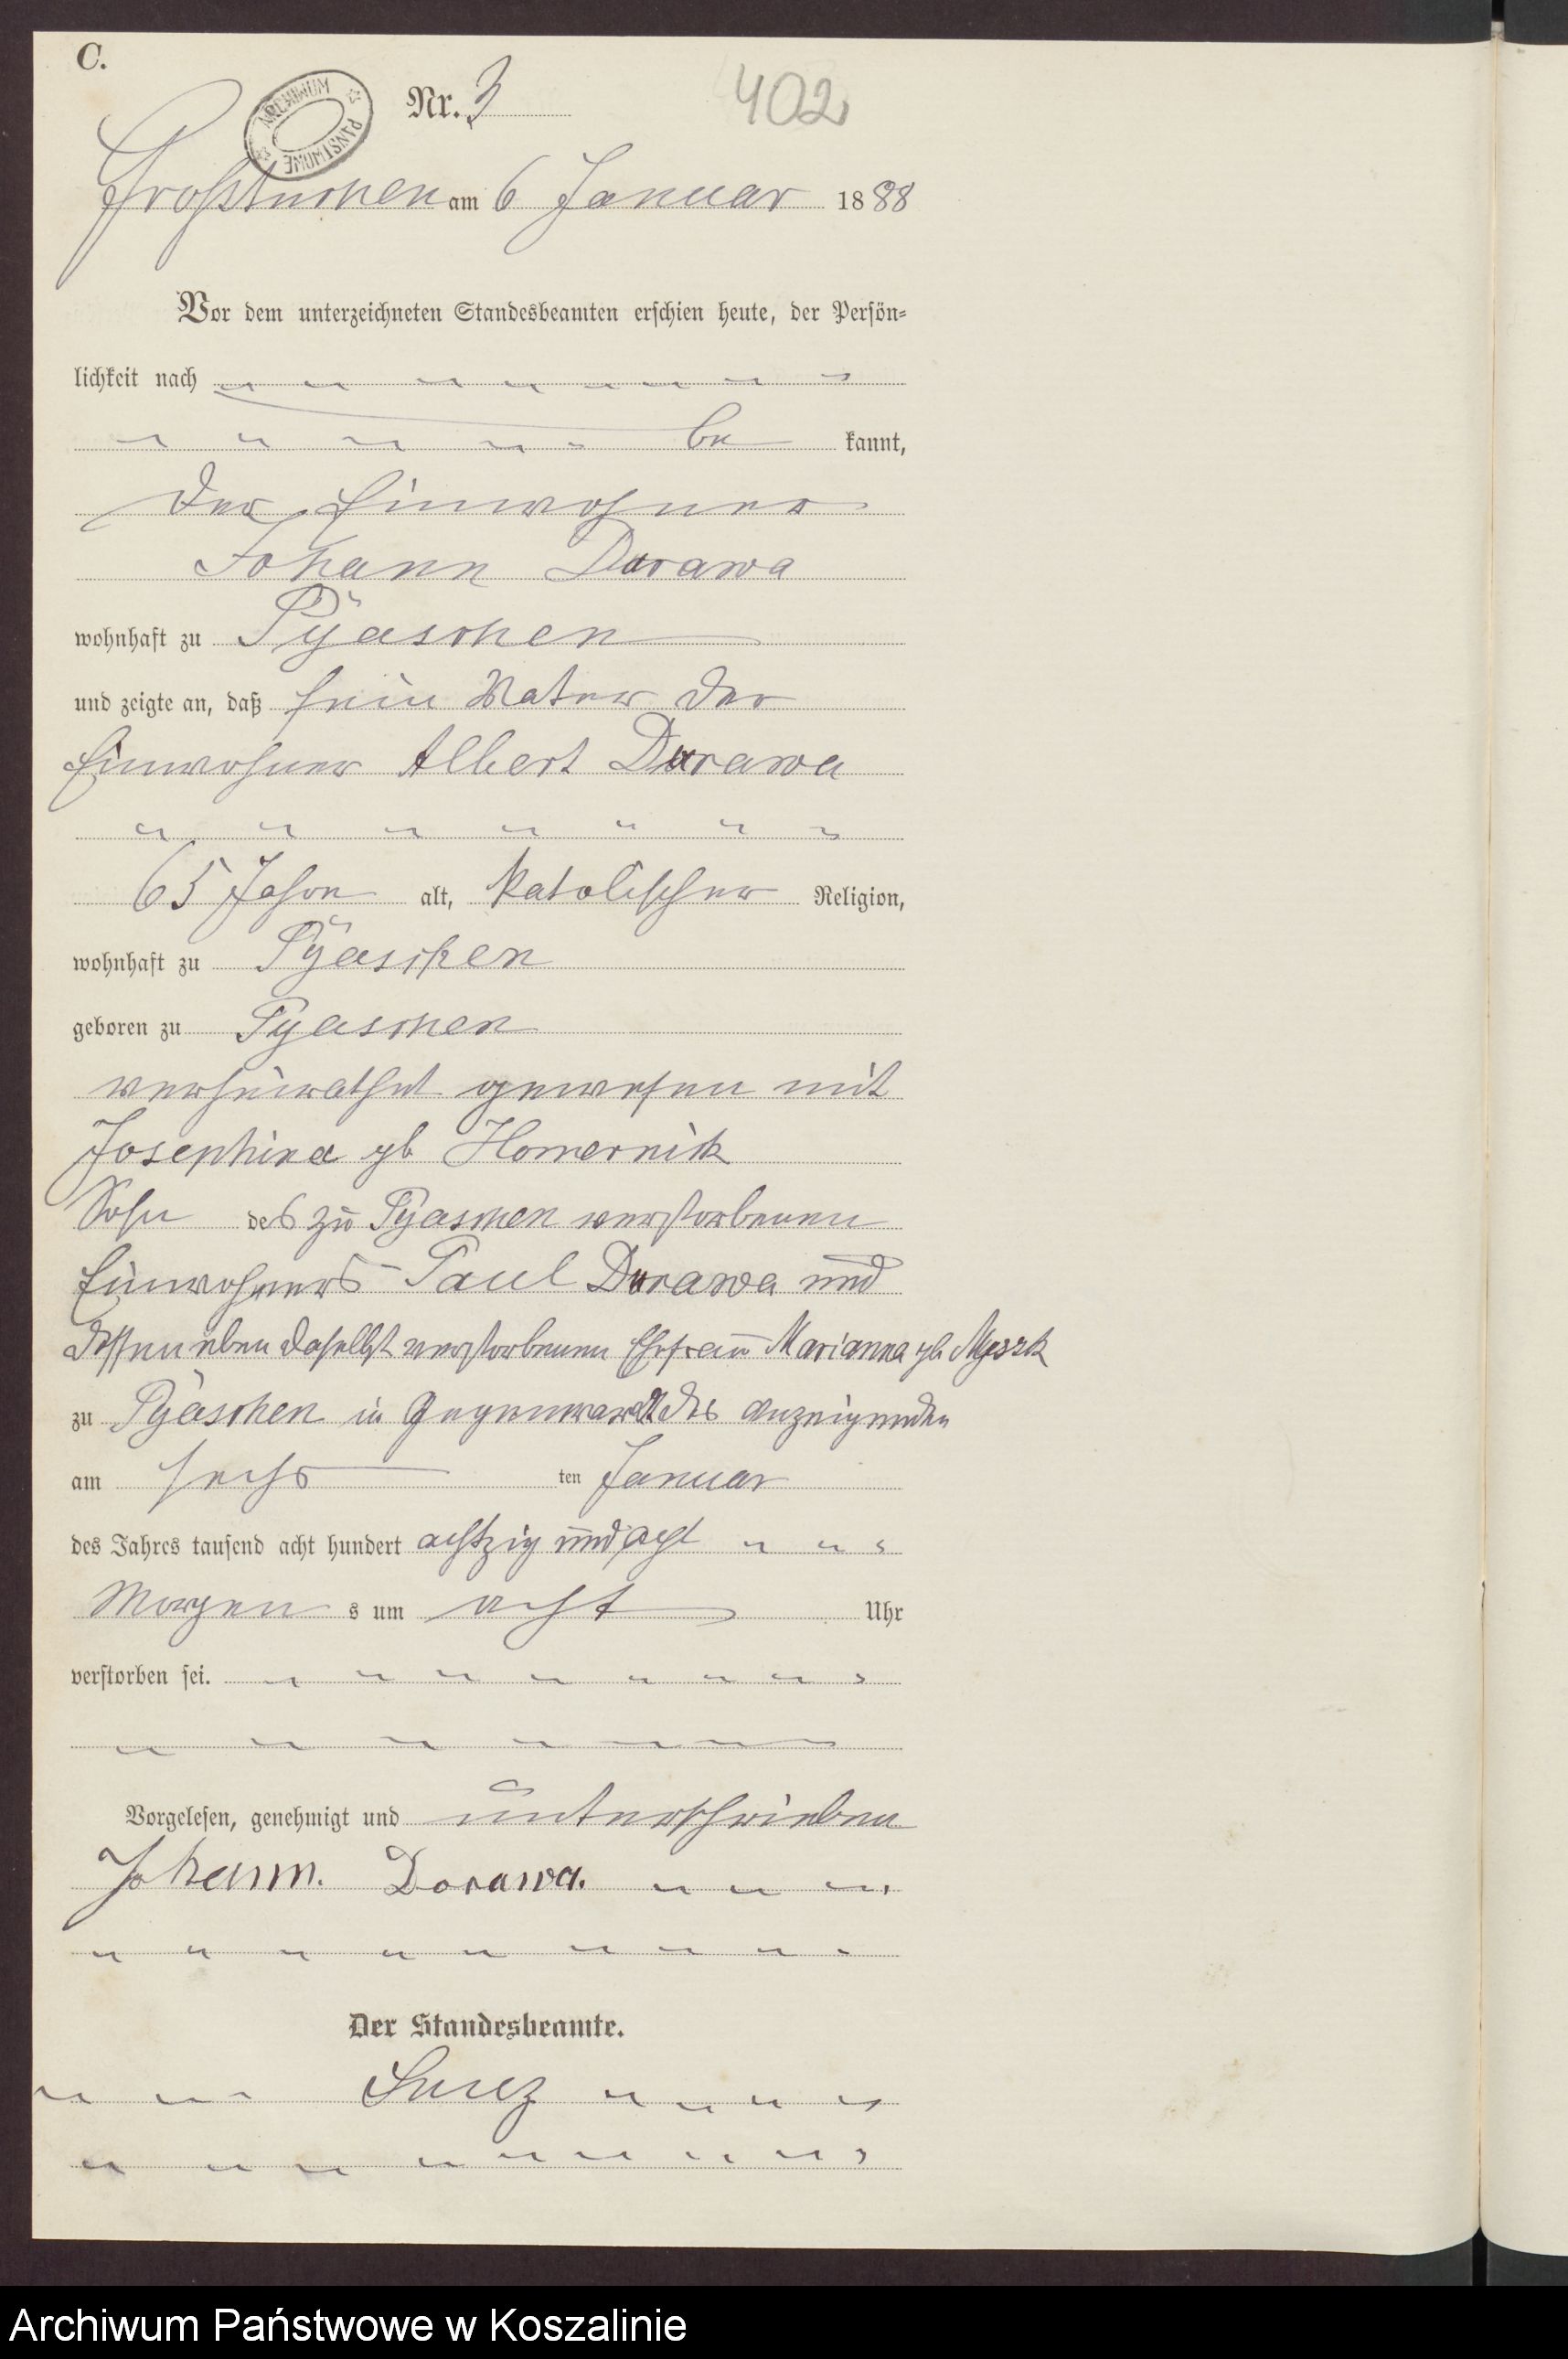 C.
ARCHIWUM PAŃSTWOWE
Nr. 3
402
Grosstuchen am 6 Januar 1888
Vor dem unterzeichneten Standesbeamten erschien heute, der Persön-
lichkeit nach
be kannt,
der Einwohner
Johann Durawa
wohnhaft zu Pyaschen
und zeigte an, daß sein Vater der
Einwohner Albert Durawa
65 Jahre alt, katolischer Religion,
wohnhaft zu Pyaschen
geboren zu Pyaschen
verheirathet gewesen mit
Josephina gb
Sohn des zu Pyaschen verstorbenen
Einwohners Paul Durawa und
dessen eben daselbst verstorbenen Ehefrau Marianna gb
zu Pyaschen in Gegenwart des Anzeigenden
am sechs ten Januar
des Jahres tausend acht hundert achtzig und acht
Morgen s um acht Uhr
verstorben sei.
Vorgelesen, genehmigt und unterschrieben
Johann. Dorawa.
Der Standesbeamte.
Archiwum Państwowe w Koszalinie